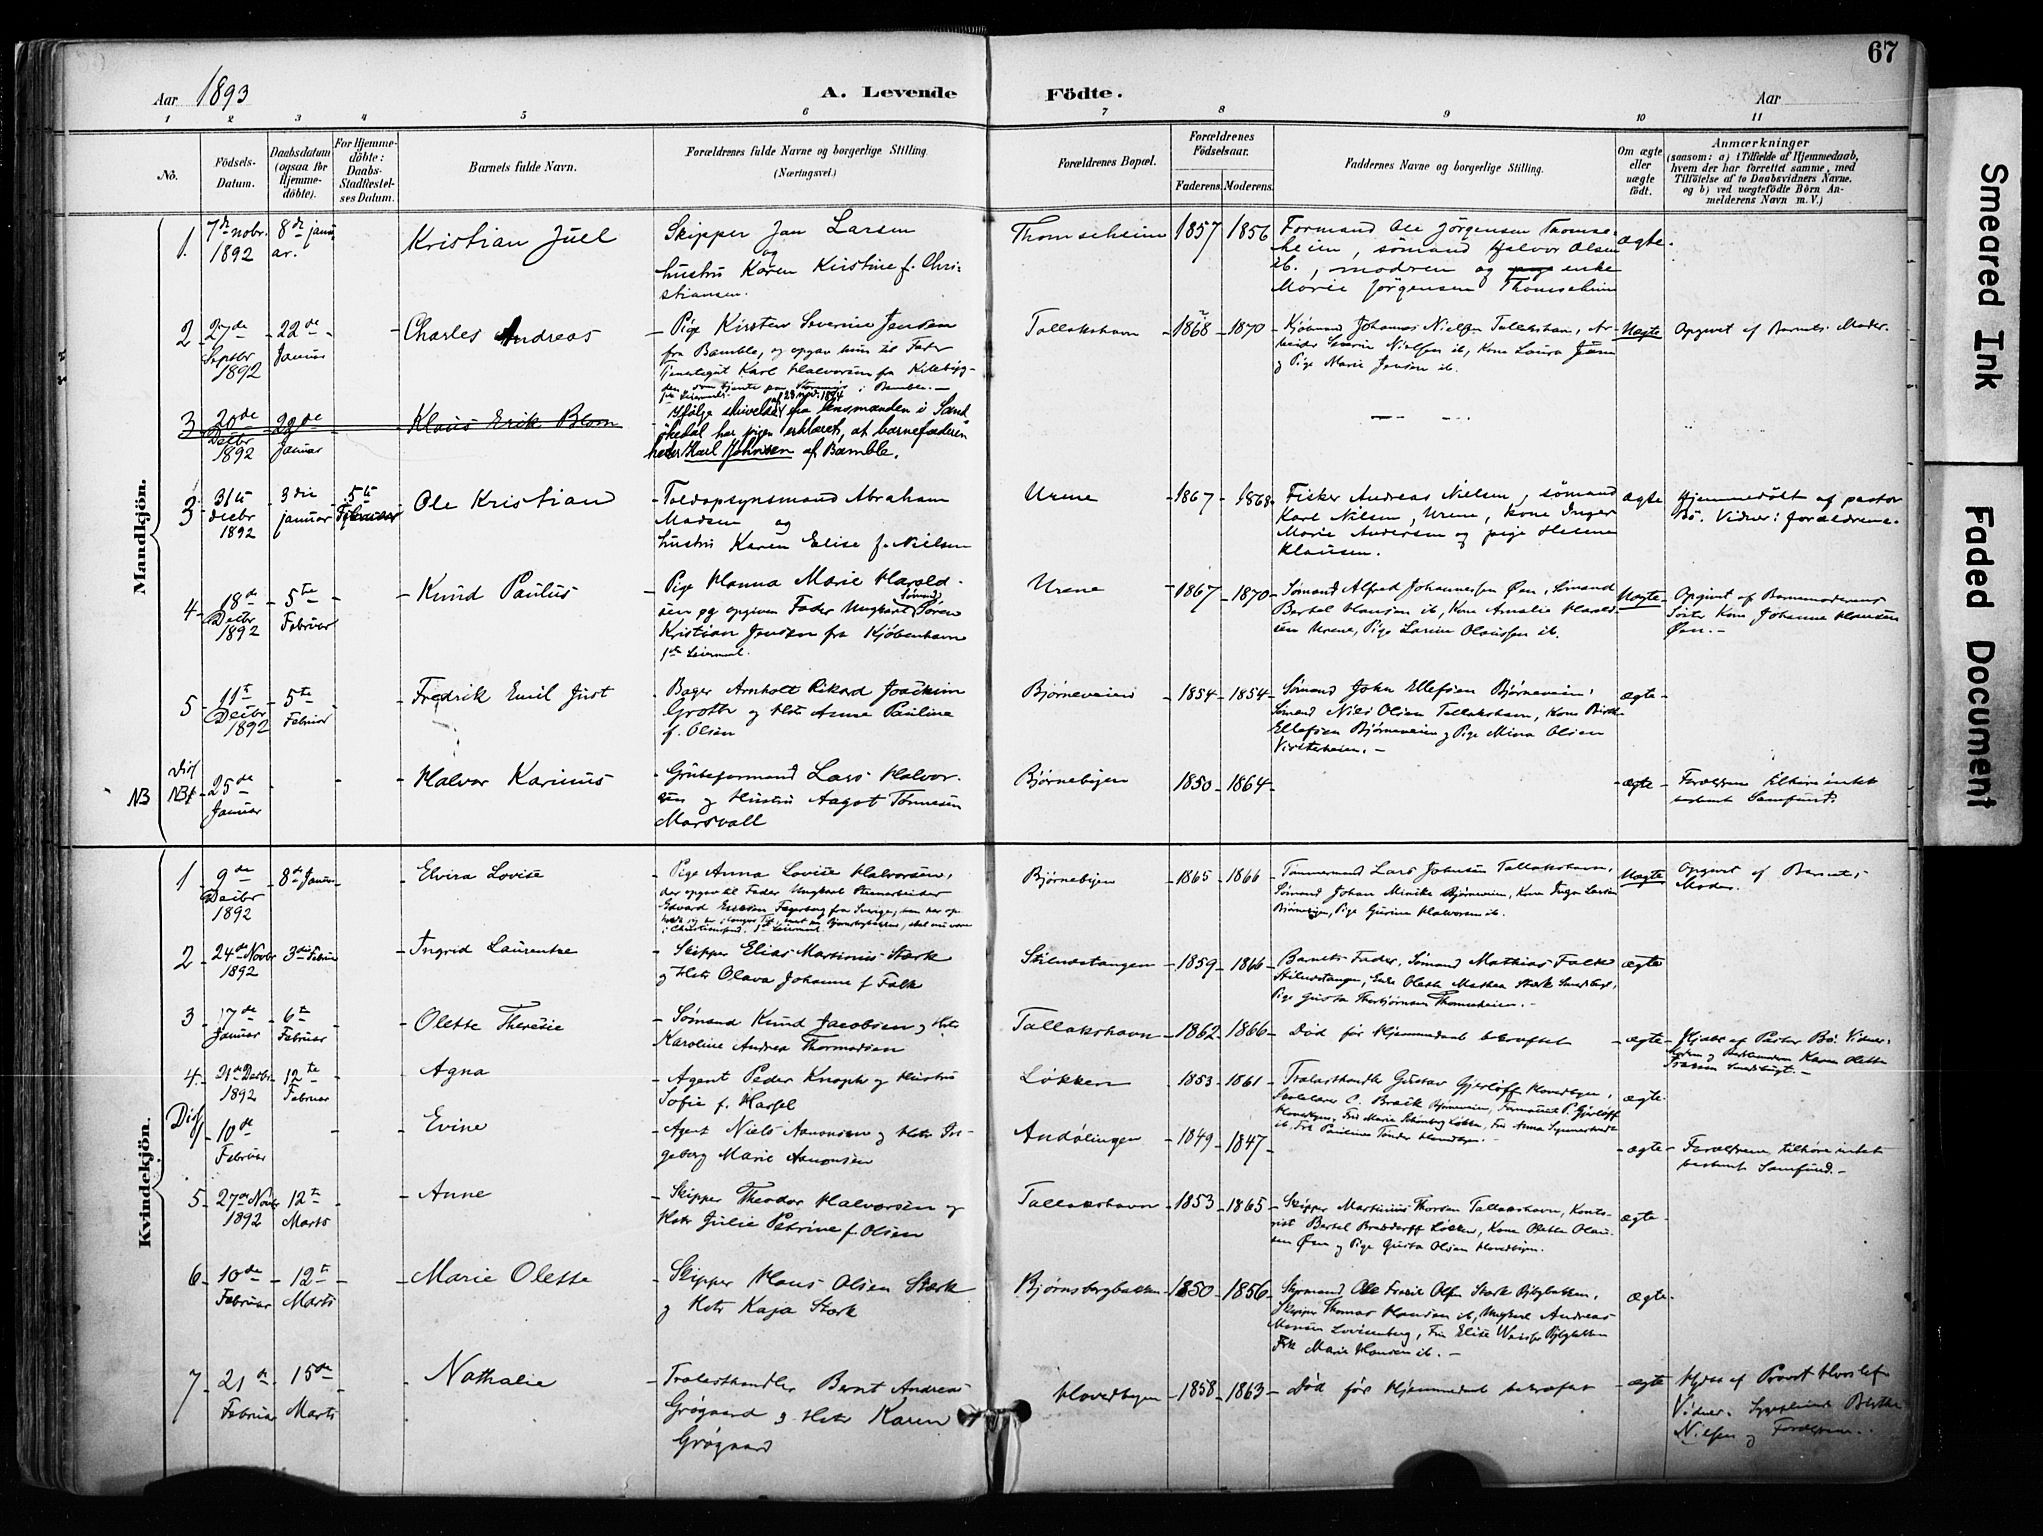 67
Aar 1893
A. Levende Födte.
Aar
1 2 3 4 5 6 7 8 9 10 11
No.
Födsels-Datum.
Daabsdatum (ogsaa for Hjemmedöbte).
For Hjemmedöbte: Daabs-Stadfæstelses Datum.
Barnets fulde Navn.
Forældrenes fulde Navne og borgerlige Stilling.
(Næringsvei.)
Forældrenes Bopæl.
Forældrenes Födselsaar.
Faderens. Moderens.
Faddernes Navne og borgerlige Stilling.
Om ægte eller uægte födt.
Anmærkninger
(saasom: a) i Tilfælde af Hjemmedaab, hvem der har forrettet samme, med Tilföielse af to Daabsvidners Navne. og b) ved uægtefödte Börn Anmelderens Navn m. V.)
Mandkjön.
1. 7de nobr. 1892
8de januar.
Kristian Juel
Skipper Jan Larsen
og
hustru Karen Kristine f. Christiansen.
Thomseheim
1857 1856
Formand Ole Jörgensen Thomseheim, sömand Halvor Olsen ib., modren og enke Marie Jörgensen Thomseheim
ægte.
2 27de Septbr 1892
22de Januar
Charles Andreas
Pige Kirsten Severine Jensen
fra Bamble, og opgav hun til Fader
Karl Halvorsen fra
i Bamble.
Tallakshavn
1868 1870
Kjøbmd Johannes Nielsen Tallakshavn, Arbeider Severin Nielsen ib, Kone Laura
og Pige Marie Jensen ib.
Uægte
Opgivet af Barnets Moder.
3 20de Decbr 1892
29de Januar
Klaus Erik Blom
Ifølge skrivelse af 23 nov. 1894 fra lensmanden i Sandøkedal har pigen erklæret, at barnefaderen heder Karl Johnsen af Bamble.
3 31te decbr 1892
3die januar
5te Februar
Ole Kristian
Toldopsynsmand Abraham
Madsen og
hustru Karen Elise f. Nielsen
Urene
1867 1868
Fisker Andreas Nielsen, sömand
Karl Nilsen, Urene, kone Inger
Marie Andersen og pige Helene
Klausen.
ægte
Hjemmedöbt af pastor
Bö. Vidner: forældrene.
4 18de Decbr 1892
5te Februar
Knud Paulus
Pige Hanna Marie Haraldsen og opgiven Fader Ungkarl Sømand Søren
Kristian Jensen fra Kjøbenhavn
1ste Leiermaal.
Urene
1867 1870
Sømand Alfred Johannesen Øen, Sømand
Bertel Hansen ib, Kone Amalie Haraldsen Urene, Pige Larine Olaussen ib.
Uægte
Opgivet af Barnemoderens
Søster Kone Johanne Hansen
Øen.
5 11te Decbr 1892
5te Februar
Fredrik Emil Just
Bager Arnholt Rikard Joachim
Groth og Hstr Anne Pauline
f. Olsen
Bjørneveien
1854 1854
Sømand John Ellefsen Bjørneveien,
Sømand Niels Olsen Tallakshavn, Kone
Ellefsen Bjørneveien og Pige Mina Olsen
ægte
NB
Diss NB1
25de Januar
Halvor Karinus
Grubeformand Lars Halvorsen og Hustru Aagot Tønnesen
Marsvall
Bjørnebyen
1850 1864
ægte
Forældrene tilhøre intet
bestemt Samfund.
Kvindekjön.
1 9de Decbr 1892
8de Januar
Elvira Lovise
Pige Anna Lovise Halvorsen,
der opgav til Fader Ungkarl Stenarbeider
Edvard Ericsen Fagerberg fra Sverige,
Bjørnebyen
1865 1866
Tømmermand Lars Johnsen Tallakshavn,
Sømand Johan Minike Bjørneveien, Kone Inga Larsen
Bjørnebyen, Pige Gurine Halvorsen ib.
Uægte
Opgivet af Barnets
Moder.
2 24de Novbr 1892
3die Februar
Ingrid Laurentze
Skipper Elias Martinius Stærk
og Hstr Olava Johanne f. Falk
Stilnestangen
1859 1866
Barnets Fader, Sømand Mathias Falk
Stilnestangen, Enke Olette Mathea Stærk
Pige Gusta Thorbjørnsen Thomseheien.
ægte
3 17de Januar
6te Februar
Olette Theresie
Sømand Knud Jacobsen og Hstr
Karoline Andrea Thormodsen
Tallakshavn
1862 1866
Død før Hjemmedaab bekræftet
ægte
Hjdøbt af Pastor Bö. Vidner:
Karen Olette
4. 21de Decbr 1892
12te Februar
Agna
Agent Peder Knoph og Hustru
Sofie f. Hassel
Løkken
1853 1861
Trælasthandler Gustav Gjerløff Hovedbyen,
ægte
Diss 1 10de Februar
Evine
Agent Niels Aanonsen og Hstr Ingeborg Marie Aanonsen
Andølingen
1849 1847
ægte
Forældrene tilhøre intet
bestemt Samfund.
5 27de Novbr 1892
12te Marts
Anne
Skipper Theodor Halvorsen og
Hstr Julie Petrine f. Olsen
Tallakshavn
1853 1865
Skipper Martinius Thorsen Tallakshavn, Kontorist Bertel Løkken, Kone Olette Olausen Øen og Pige Gusta Olsen Hovedbyen.
ægte
6 10de Februar
12te Marts
Marie Olette
Skipper Klaus Olsen Stærk
og Hstr Kaja Stærk
Bjørnsbergbakken
1850 1856
Skipper Thomas Hansen ib, Ungkarl Andreas
Hansen Lovisenberg, Fru Elise
Frk Marie Hansen ib.
ægte
7 21de Februar
15de Marts
Nathalie
Trælasthandler Bernt Andreas
Grøgaard og Hstr Karen
Grøgaard
Hovedbyen
1858 1863
Død før Hjemmedaab bekræftet
ægte
Hjdøbt af Provst
Vidner: Birthe
Nielsen og Forældrene.
Smeared Ink
Faded Document